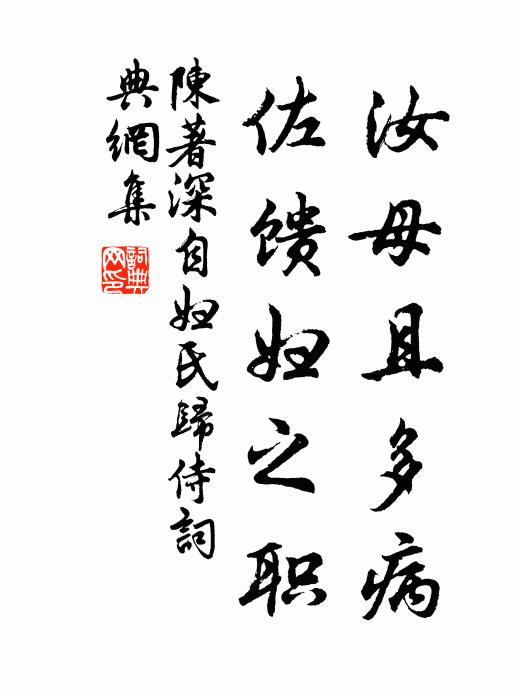 汝母且多病
佐馈妇之职
陳著深自妇氏歸侍詞
典網集
詞典网印